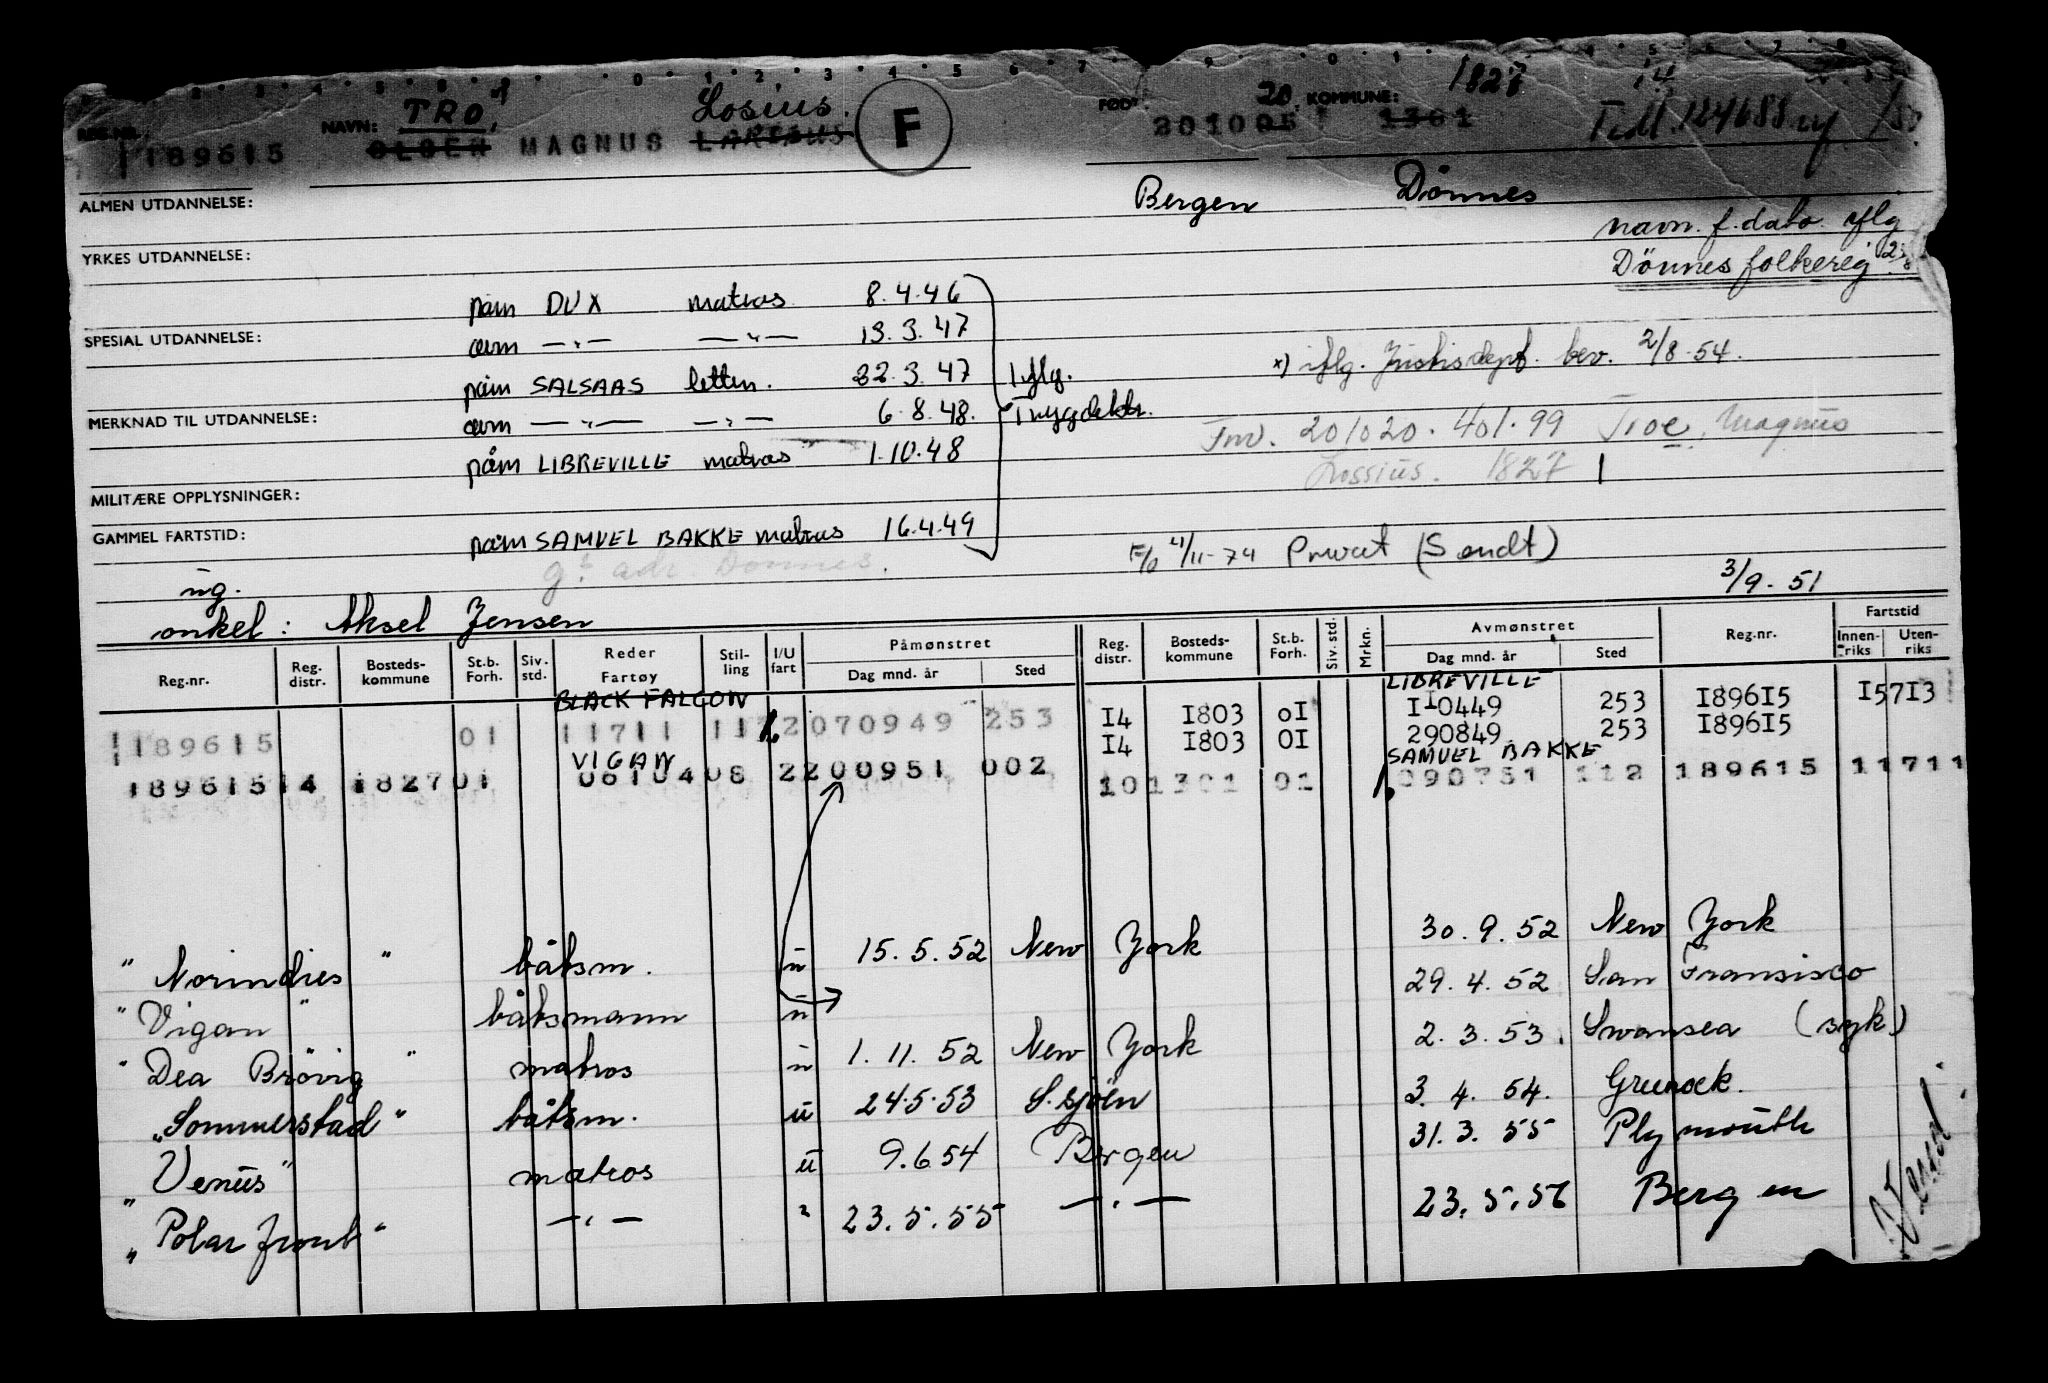 REG.NR. 189615 NAVN: TRO, OLSEN MAGNUS Losius. LARSEUS F FØDT: 20 201005 KOMMUNE: 1827 1301 14 Tidl. 124688
ALMEN UTDANNELSE: Bergen Dönnes
navn. f.dato. iflg
YRKES UTDANNELSE: Dönnes folkereg
påm DUX matros 8.4.46
SPESIAL UTDANNELSE: avm —"— —"— 13.3.47
x) iflg. Justisdept. bev. 2/8.54.
påm SALSAAS lettm. 22.3.47 Iflg.
MERKNAD TIL UTDANNELSE: avm —"— —"— 6.8.48. Trygdektr.
Inv. 201020.401.99 Troe, Magnus
påm LIBREVILLE matros 1.10.48
Lossius. 1827
MILITÆRE OPPLYSNINGER:
GAMMEL FARTSTID: påm SAMUEL BAKKE matros 16.4.49
F/o 4/11-74 Privat (Sendt)
ug. gt adr. Dönnes.
3/9.51
onkel: Aksel Jensen
Reg.nr. Reg. distr. Bosteds- kommune St.b. Forh. Siv. std. Reder Fartøy Stil- ling I/U fart Påmønstret Dag mnd. år Sted Reg. distr. Bosteds- kommune St.b. Forh. Siv. std. Mrkn. Avmønstret Dag mnd. år Sted Reg.nr. Fartstid Innen- riks Uten- riks
BLACK FALCON LIBREVILLE
189615 01 11711 11 2070949 253 14 1803 01 110449 253 189615 15713
14 1803 01 290849 253 189615
VIGAN SAMUEL BAKKE
189615 14 1827 01 0610408 2200951 002 10 1301 01 090751 112 189615 11711
" Norindies " båtsm. u 15.5.52 New York 30.9.52 New York
" Vigan " båtsmann u 29.4.52 San Fransisco
" Dea Brövig " matros u 1.11.52 New York 2.3.53. Swansea (syk)
"Sommerstad" båtsm. u 24.5.53 S.sjöen 3.4.54. Grenock.
"Venus" matros u 9.6.54 Bergen 31.3.55 Plymouth
"Polarfront" —"— " 23.5.55 —"— 23.5.56 Bergen
Vend.